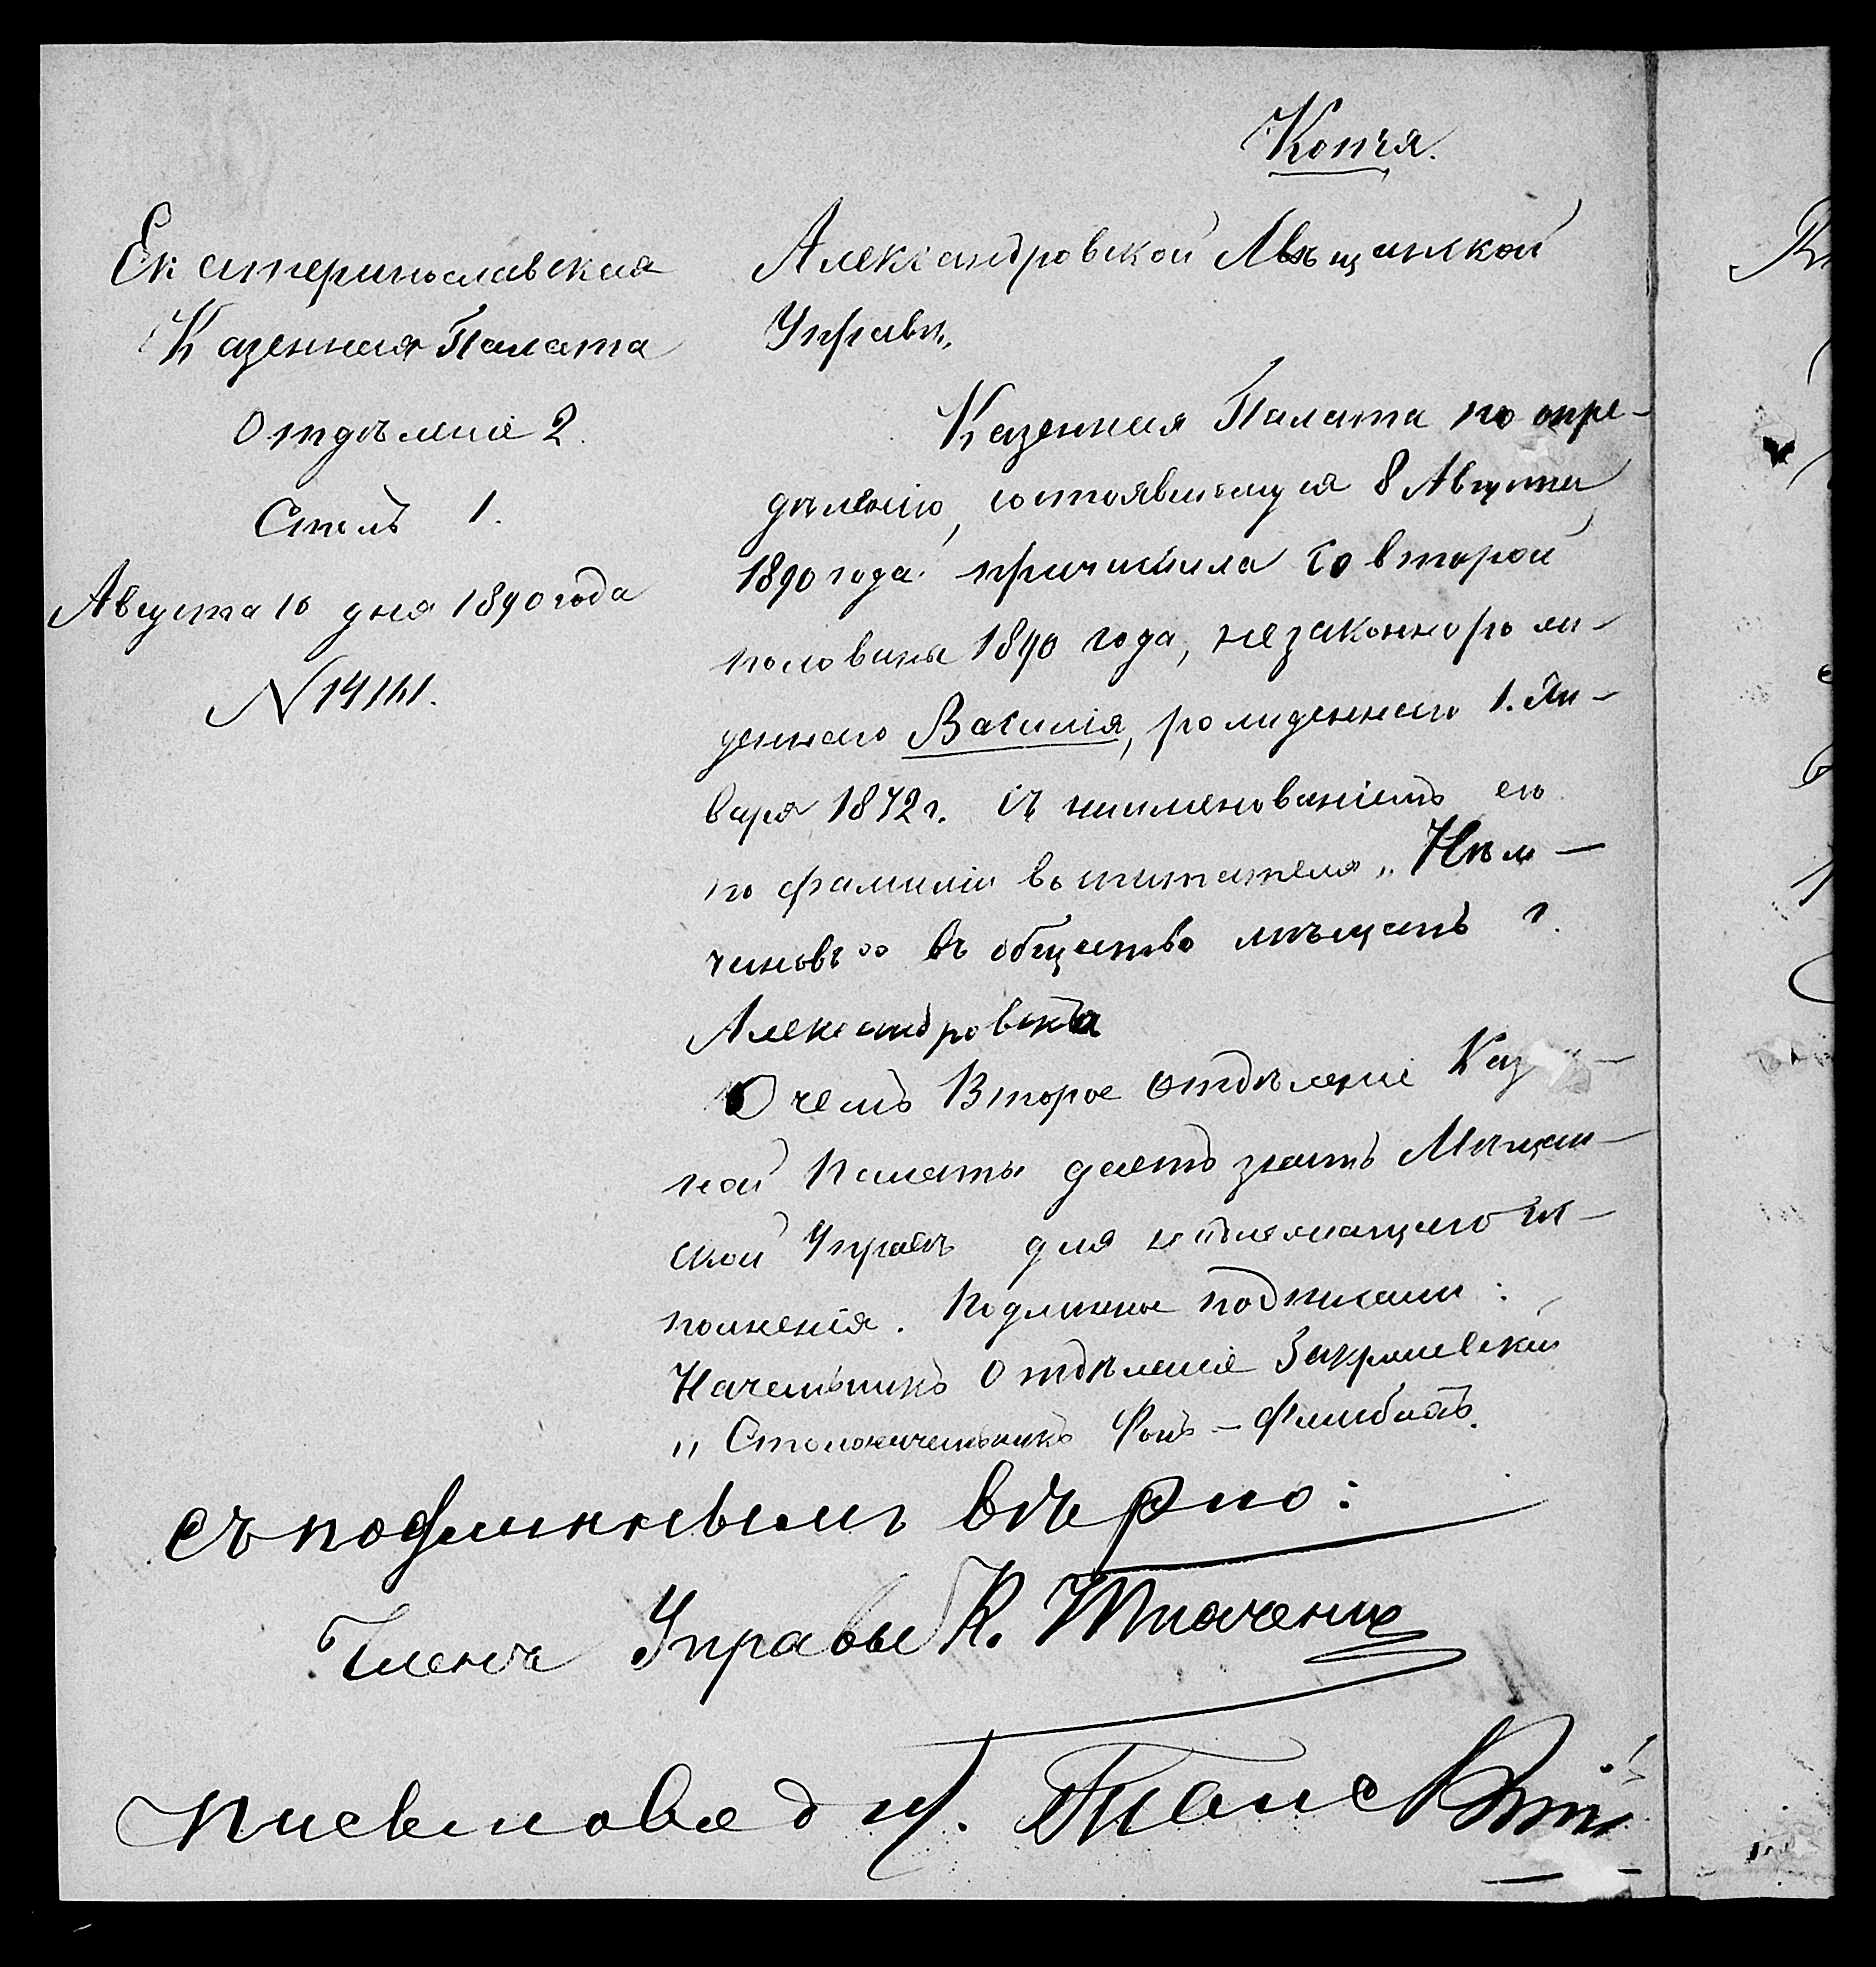 Копія.
Екатеринославская
Казенная Палата
Отдѣленіе 2.
Столъ 1.
Августа 10 дня 1890 года
N 14141.
Александровской Мѣщанской
Управѣ,
Казенная Палата по опре-
дѣленію, состоявшемуся 8 Августа
1890 года причислила со второй
половины 1890 года, незаконнорож-
деннаго Василія, рожденнаго 1. Ян-
варя 1872 г. съ наименованіемъ его
по фамиліи воспитателя „Нѣм-
чиновъ" въ общество мѣщанъ г.
Александровска
О чемъ Второе отдѣленіе Каз
ной Палаты даетъ знать Мѣщан-
ской Управѣ для надлежащаго ис-
полненія. Подлинное подписали:
Начальникъ Отдѣленія Закржевскій
„ Столоначальникъ Фонъ-
съ подлиннымъ вѣрно:
Членъ Управы К. Ткаченко
Письмовод